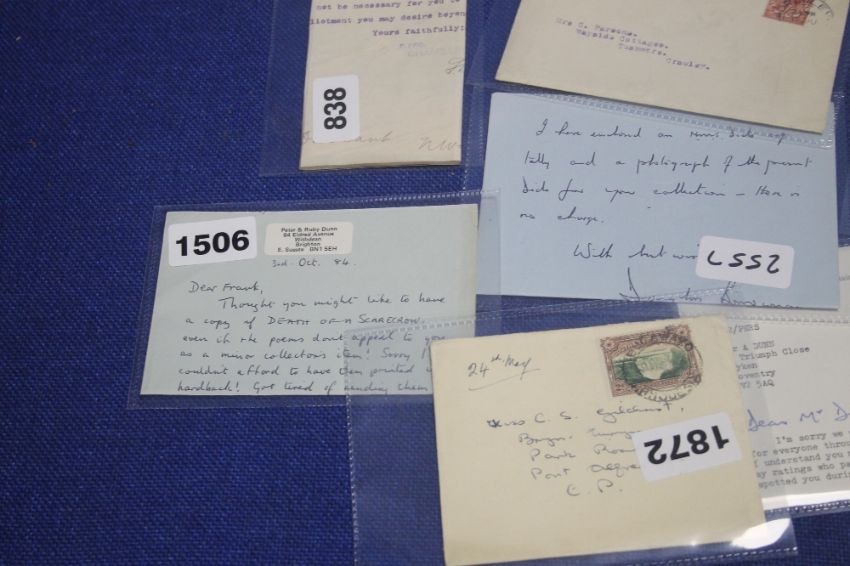 not be necessary for you to
llotment you may desire beyon
Yours faithfully;
838
Mrs C. Parsons.
Wayside Cottages.
Tushmore.
Crawley.
I have enclosed an
and a photograph of the present
for your collection - there is
no charge.
With best
2557
1506
Peter & Ruby Dunn
64 Eldred Avenue
Withdean
Brighton
E. Sussex BN1 5EH
3rd. Oct. 84.
Dear Frank,
Thought you might like to have
a copy of DEATH OF A SCARECROW
even if the poems dont appeal to you
as a minor collectors item! Sorry I
couldn't afford to have them printed in
hardback! Got tired of sending them
24th May
Miss C. S. Gilchrist,
Park Road
Port
C.P.
1872
/PERS
r A DUNN
Triumph Close
yken
oventry
V2 5AQ
Dear Mr D
I'm sorry we
for everyone throu
f understand you
ay ratings who pa
spotted you durin